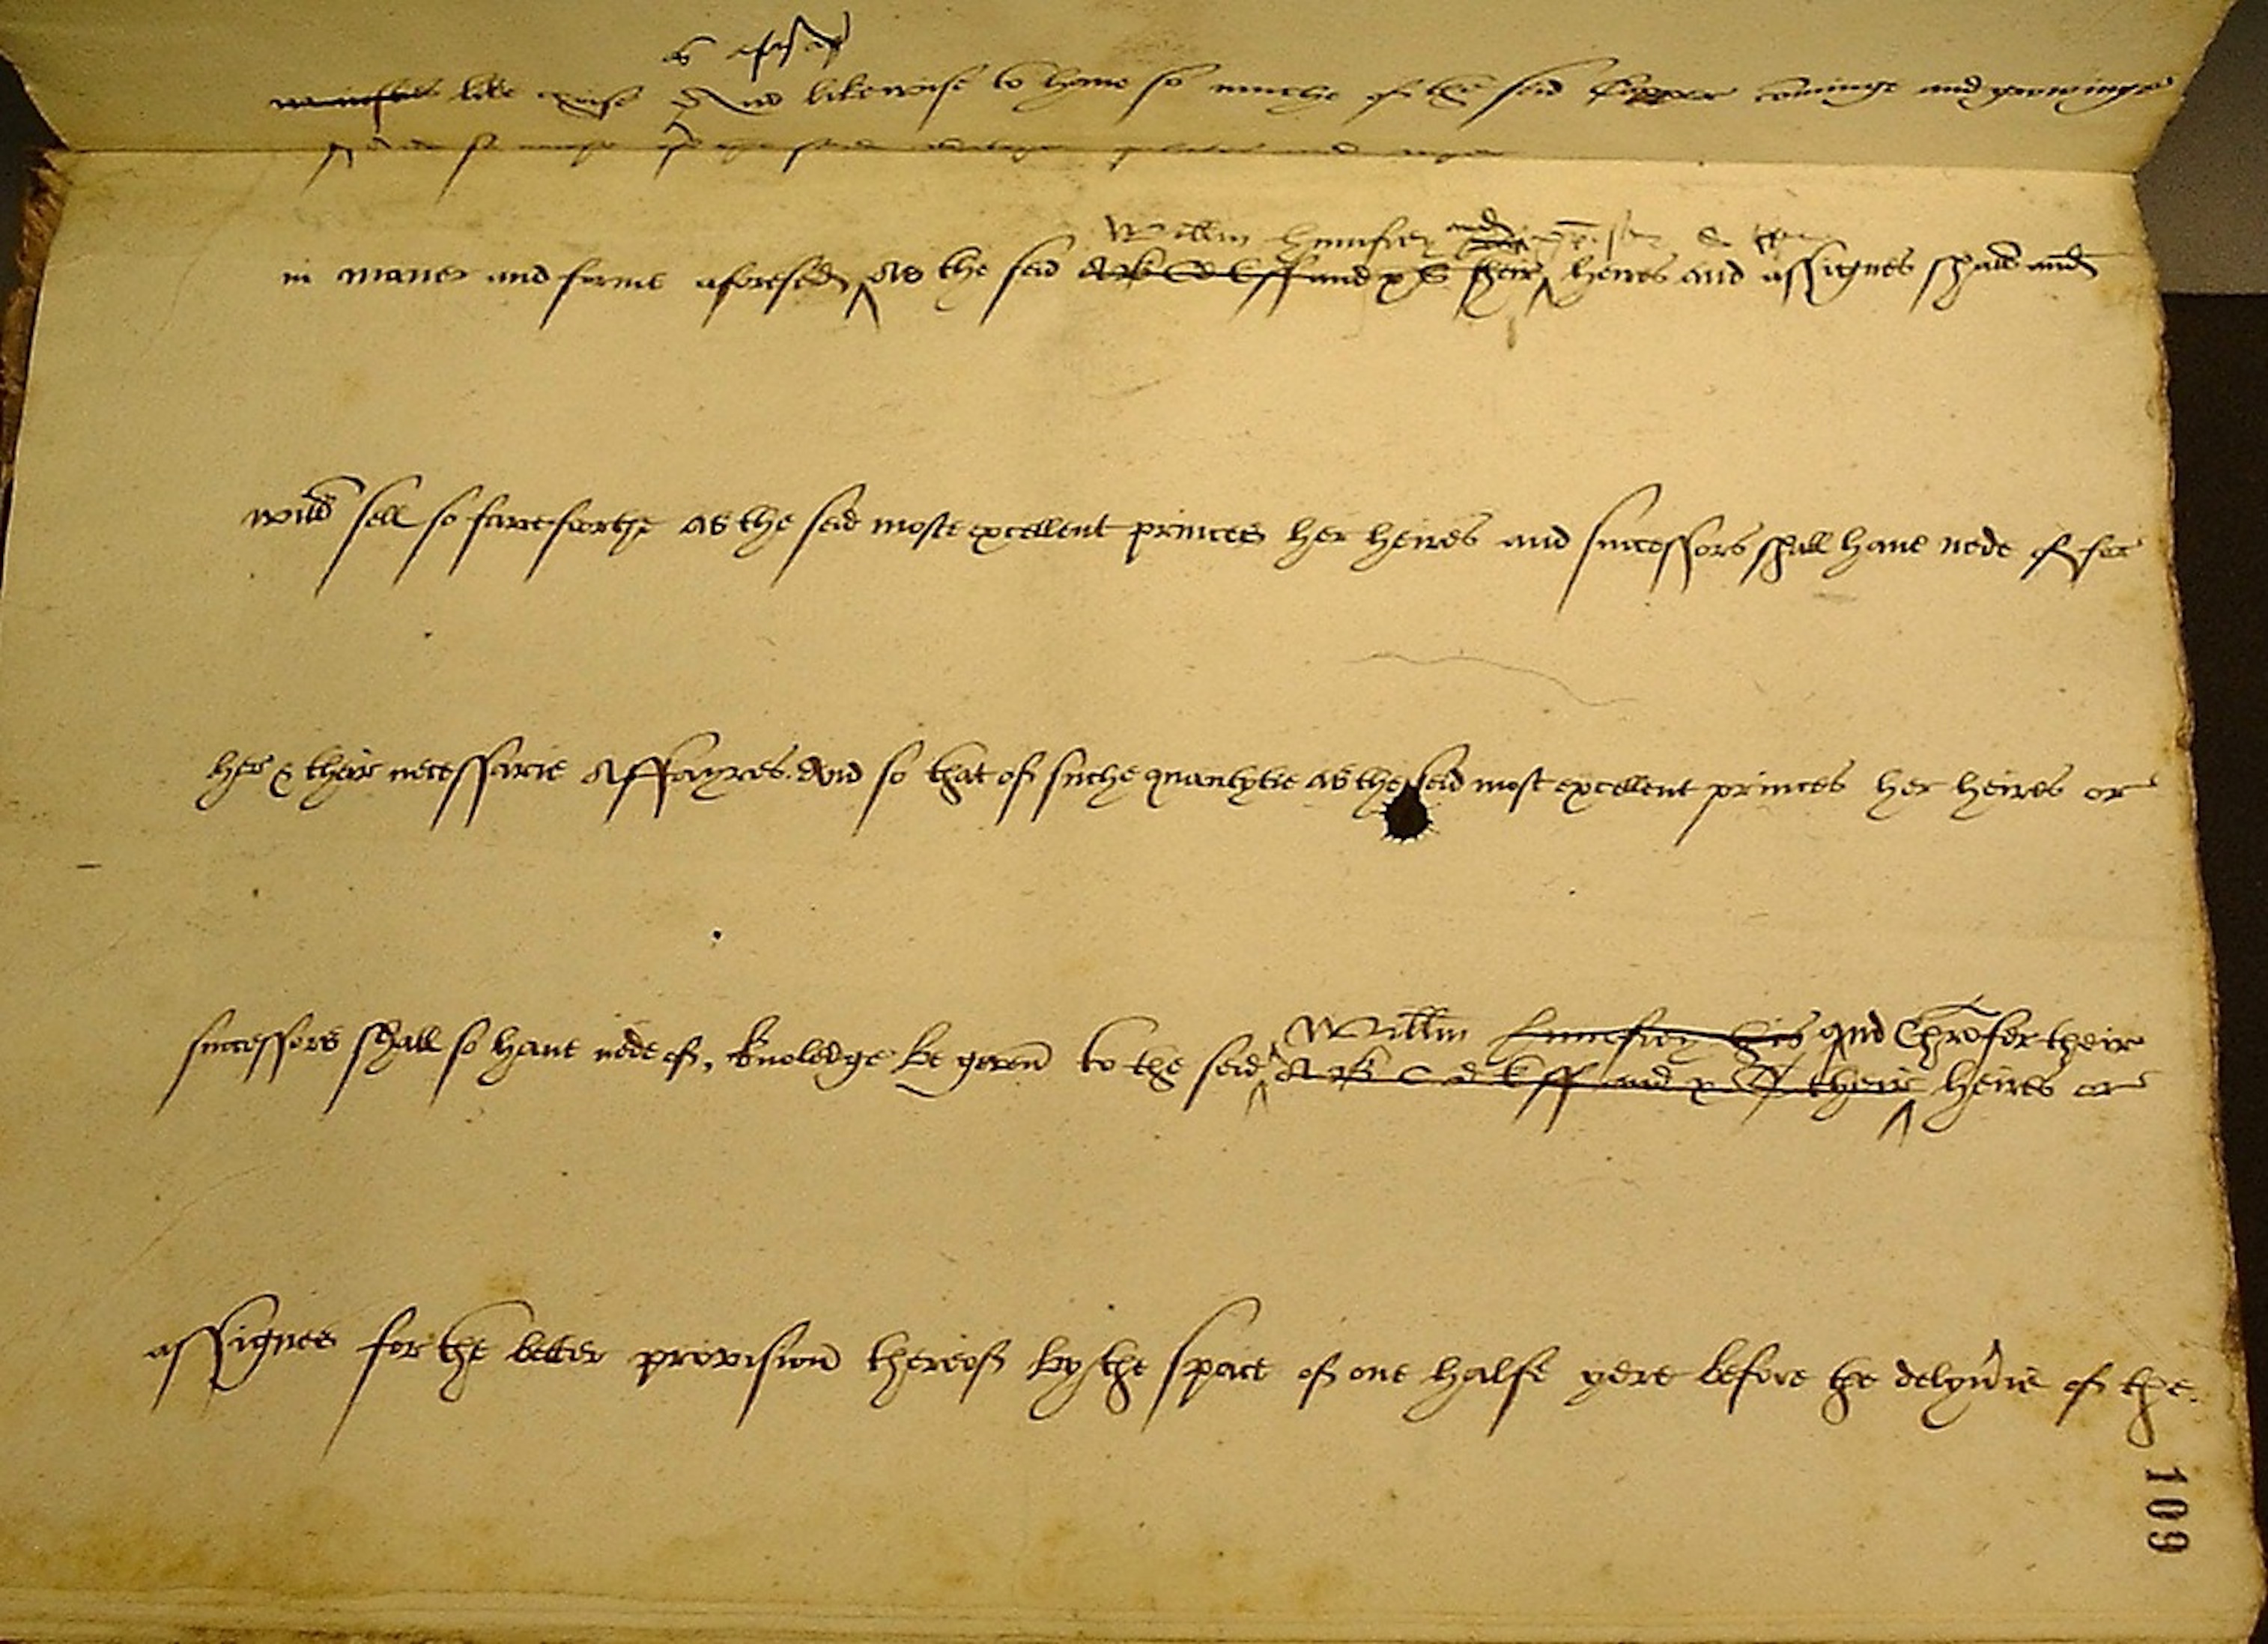 as afore said
like wise And likewise to haue so muche of the said Copper cominge and growinge
in maner and forme aforesed As the seid A B C d E ff and x G their heires and assignes shall and
Willm Humfrey and
will sell so farreforthe as the seid moste excellent princes her heires and successors shall haue nede of for
her & their necessarie Affayres. And so that of suche quantytie as the seid most excellent princes her heires or
Willm Humfrey his and Chrofer their
successors shall so haue nede of, knoledge be geven to the seid A B C d E ff and x G their heires or
assignes for the better provision thereof by the space of one halfe yere before the delyverie of the
109